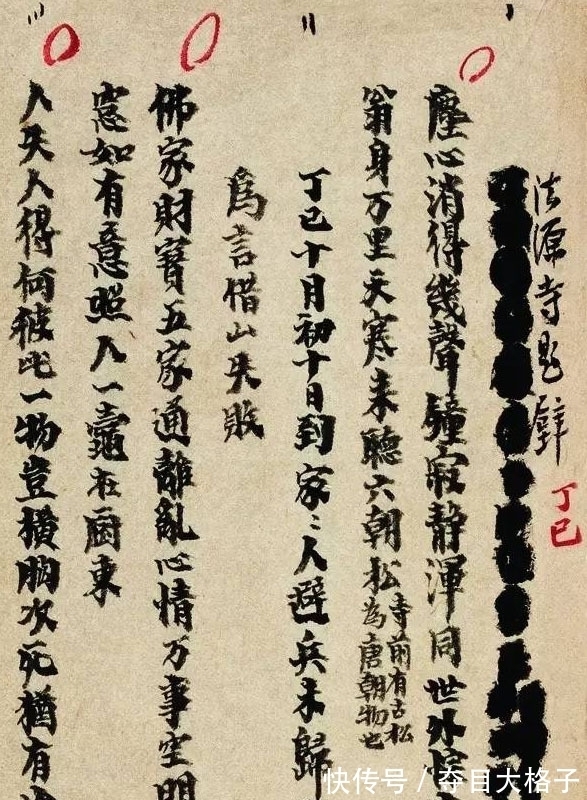 法源寺題壁
丁巳
塵心消得幾聲鐘寂靜渾同世外
翁身万里天寒来聽六朝松寺前有古松
為唐朝物也
丁巳十月初十日到家〻人避兵未歸
為言借山失敗
佛家財寶五家通離亂心情万事空明
窓如有意照人一龕在厨東
人失人得何彼此一物豈横胸次死猶有
快传号/夺目大格子